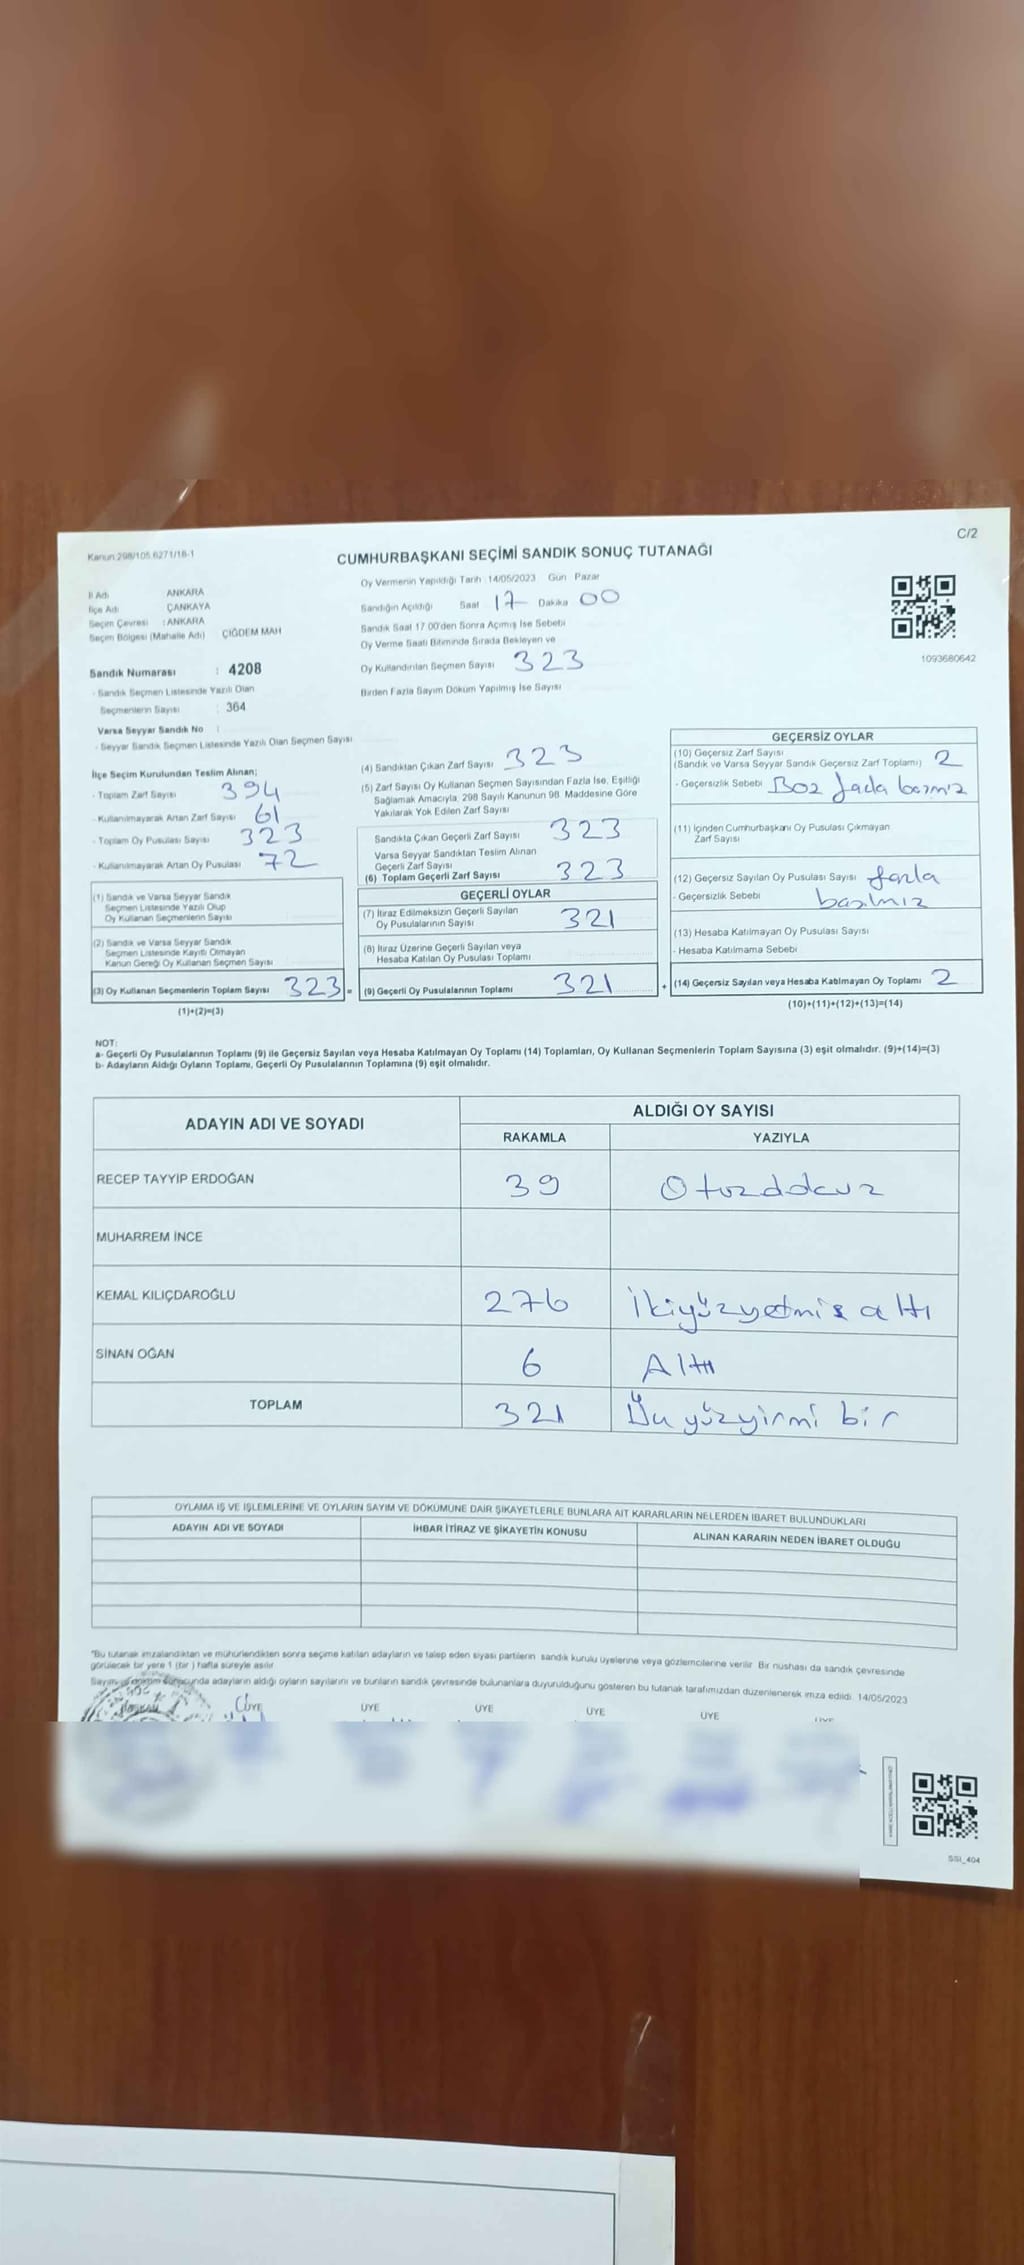 Kanun:298/105.6271/18-1
C/2
CUMHURBAŞKANI SEÇİMİ SANDIK SONUÇ TUTANAĞI
İl Adı ANKARA
İlçe Adı ÇANKAYA
Seçim Çevresi : ANKARA
Seçim Bölgesi (Mahalle Adı) ÇİĞDEM MAH
Sandık Numarası : 4208
- Sandık Seçmen Listesinde Yazılı Olan
Seçmenlerin Sayısı : 364
Varsa Seyyar Sandık No :
- Seyyar Sandık Seçmen Listesinde Yazılı Olan Seçmen Sayısı
Oy Vermenin Yapıldığı Tarih 14/05/2023 Gün Pazar
Sandığın Açıldığı Saat 17 Dakika 00
Sandık Saat 17.00'den Sonra Açılmış İse Sebebi
Oy Verme Saati Bitiminde Sırada Bekleyen ve
Oy Kullandırılan Seçmen Sayısı 323
Birden Fazla Sayım Döküm Yapılmış İse Sayısı
1093680642
İlçe Seçim Kurulundan Teslim Alınan;
- Toplam Zarf Sayısı 394
- Kullanılmayarak Artan Zarf Sayısı 61
- Toplam Oy Pusulası Sayısı 323
- Kullanılmayarak Artan Oy Pusulası 72
(1) Sandık ve Varsa Seyyar Sandık
Seçmen Listesinde Yazılı Olup
Oy Kullanan Seçmenlerin Sayısı
(2) Sandık ve Varsa Seyyar Sandık
Seçmen Listesinde Kayıtlı Olmayan
Kanun Gereği Oy Kullanan Seçmen Sayısı
(3) Oy Kullanan Seçmenlerin Toplam Sayısı 323 =
(1)+(2)=(3)
(4) Sandıktan Çıkan Zarf Sayısı 323
(5) Zarf Sayısı Oy Kullanan Seçmen Sayısından Fazla İse, Eşitliği
Sağlamak Amacıyla, 298 Sayılı Kanunun 98. Maddesine Göre
Yakılarak Yok Edilen Zarf Sayısı
Sandıkta Çıkan Geçerli Zarf Sayısı 323
Varsa Seyyar Sandıktan Teslim Alınan
Geçerli Zarf Sayısı
(6) Toplam Geçerli Zarf Sayısı 323
GEÇERLİ OYLAR
(7) İtiraz Edilmeksizin Geçerli Sayılan
Oy Pusulalarının Sayısı 321
(8) İtiraz Üzerine Geçerli Sayılan veya
Hesaba Katılan Oy Pusulası Toplamı
(9) Geçerli Oy Pusulalarının Toplamı 321 +
GEÇERSİZ OYLAR
(10) Geçersiz Zarf Sayısı
(Sandık ve Varsa Seyyar Sandık Geçersiz Zarf Toplamı) 2
- Geçersizlik Sebebi
(11) İçinden Cumhurbaşkanı Oy Pusulası Çıkmayan
Zarf Sayısı
(12) Geçersiz Sayılan Oy Pusulası Sayısı fazla
- Geçersizlik Sebebi basılmış
(13) Hesaba Katılmayan Oy Pusulası Sayısı
- Hesaba Katılmama Sebebi
(14) Geçersiz Sayılan veya Hesaba Katılmayan Oy Toplamı 2
(10)+(11)+(12)+(13)=(14)
NOT:
a- Geçerli Oy Pusulalarının Toplamı (9) ile Geçersiz Sayılan veya Hesaba Katılmayan Oy Toplamı (14) Toplamları, Oy Kullanan Seçmenlerin Toplam Sayısına (3) eşit olmalıdır. (9)+(14)=(3)
b- Adayların Aldığı Oyların Toplamı, Geçerli Oy Pusulalarının Toplamına (9) eşit olmalıdır.
ADAYIN ADI VE SOYADI ALDIĞI OY SAYISI
RAKAMLA YAZIYLA
RECEP TAYYİP ERDOĞAN 39 Otuzdokuz
MUHARREM İNCE
KEMAL KILIÇDAROĞLU 276 İkiyüzyetmiş altı
SİNAN OĞAN 6 Altı
TOPLAM 321 Üçyüzyirmi bir
OYLAMA İŞ VE İŞLEMLERİNE VE OYLARIN SAYIM VE DÖKÜMÜNE DAİR ŞİKAYETLERLE BUNLARA AİT KARARLARIN NELERDEN İBARET BULUNDUKLARI
ADAYIN ADI VE SOYADI İHBAR İTİRAZ VE ŞİKAYETİN KONUSU ALINAN KARARIN NEDEN İBARET OLDUĞU
"Bu tutanak imzalandıktan ve mühürlendikten sonra seçime katılan adayların ve talep eden siyasi partilerin sandık kurulu üyelerine veya gözlemcilerine verilir. Bir nüshası da sandık çevresinde
görülecek bir yere 1 (bir) hafta süreyle asılır.
Sayım ve döküm sonucunda adayların aldığı oyların sayılarını ve bunların sandık çevresinde bulunanlara duyurulduğunu gösteren bu tutanak tarafımızdan düzenlenerek imza edildi. 14/05/2023
ÜYE ÜYE ÜYE ÜYE ÜYE
SSI_404